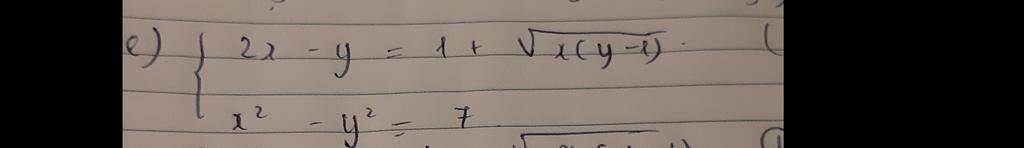 e) { 2x - y = 1 + √x(y-1) (
x² - y² = 7